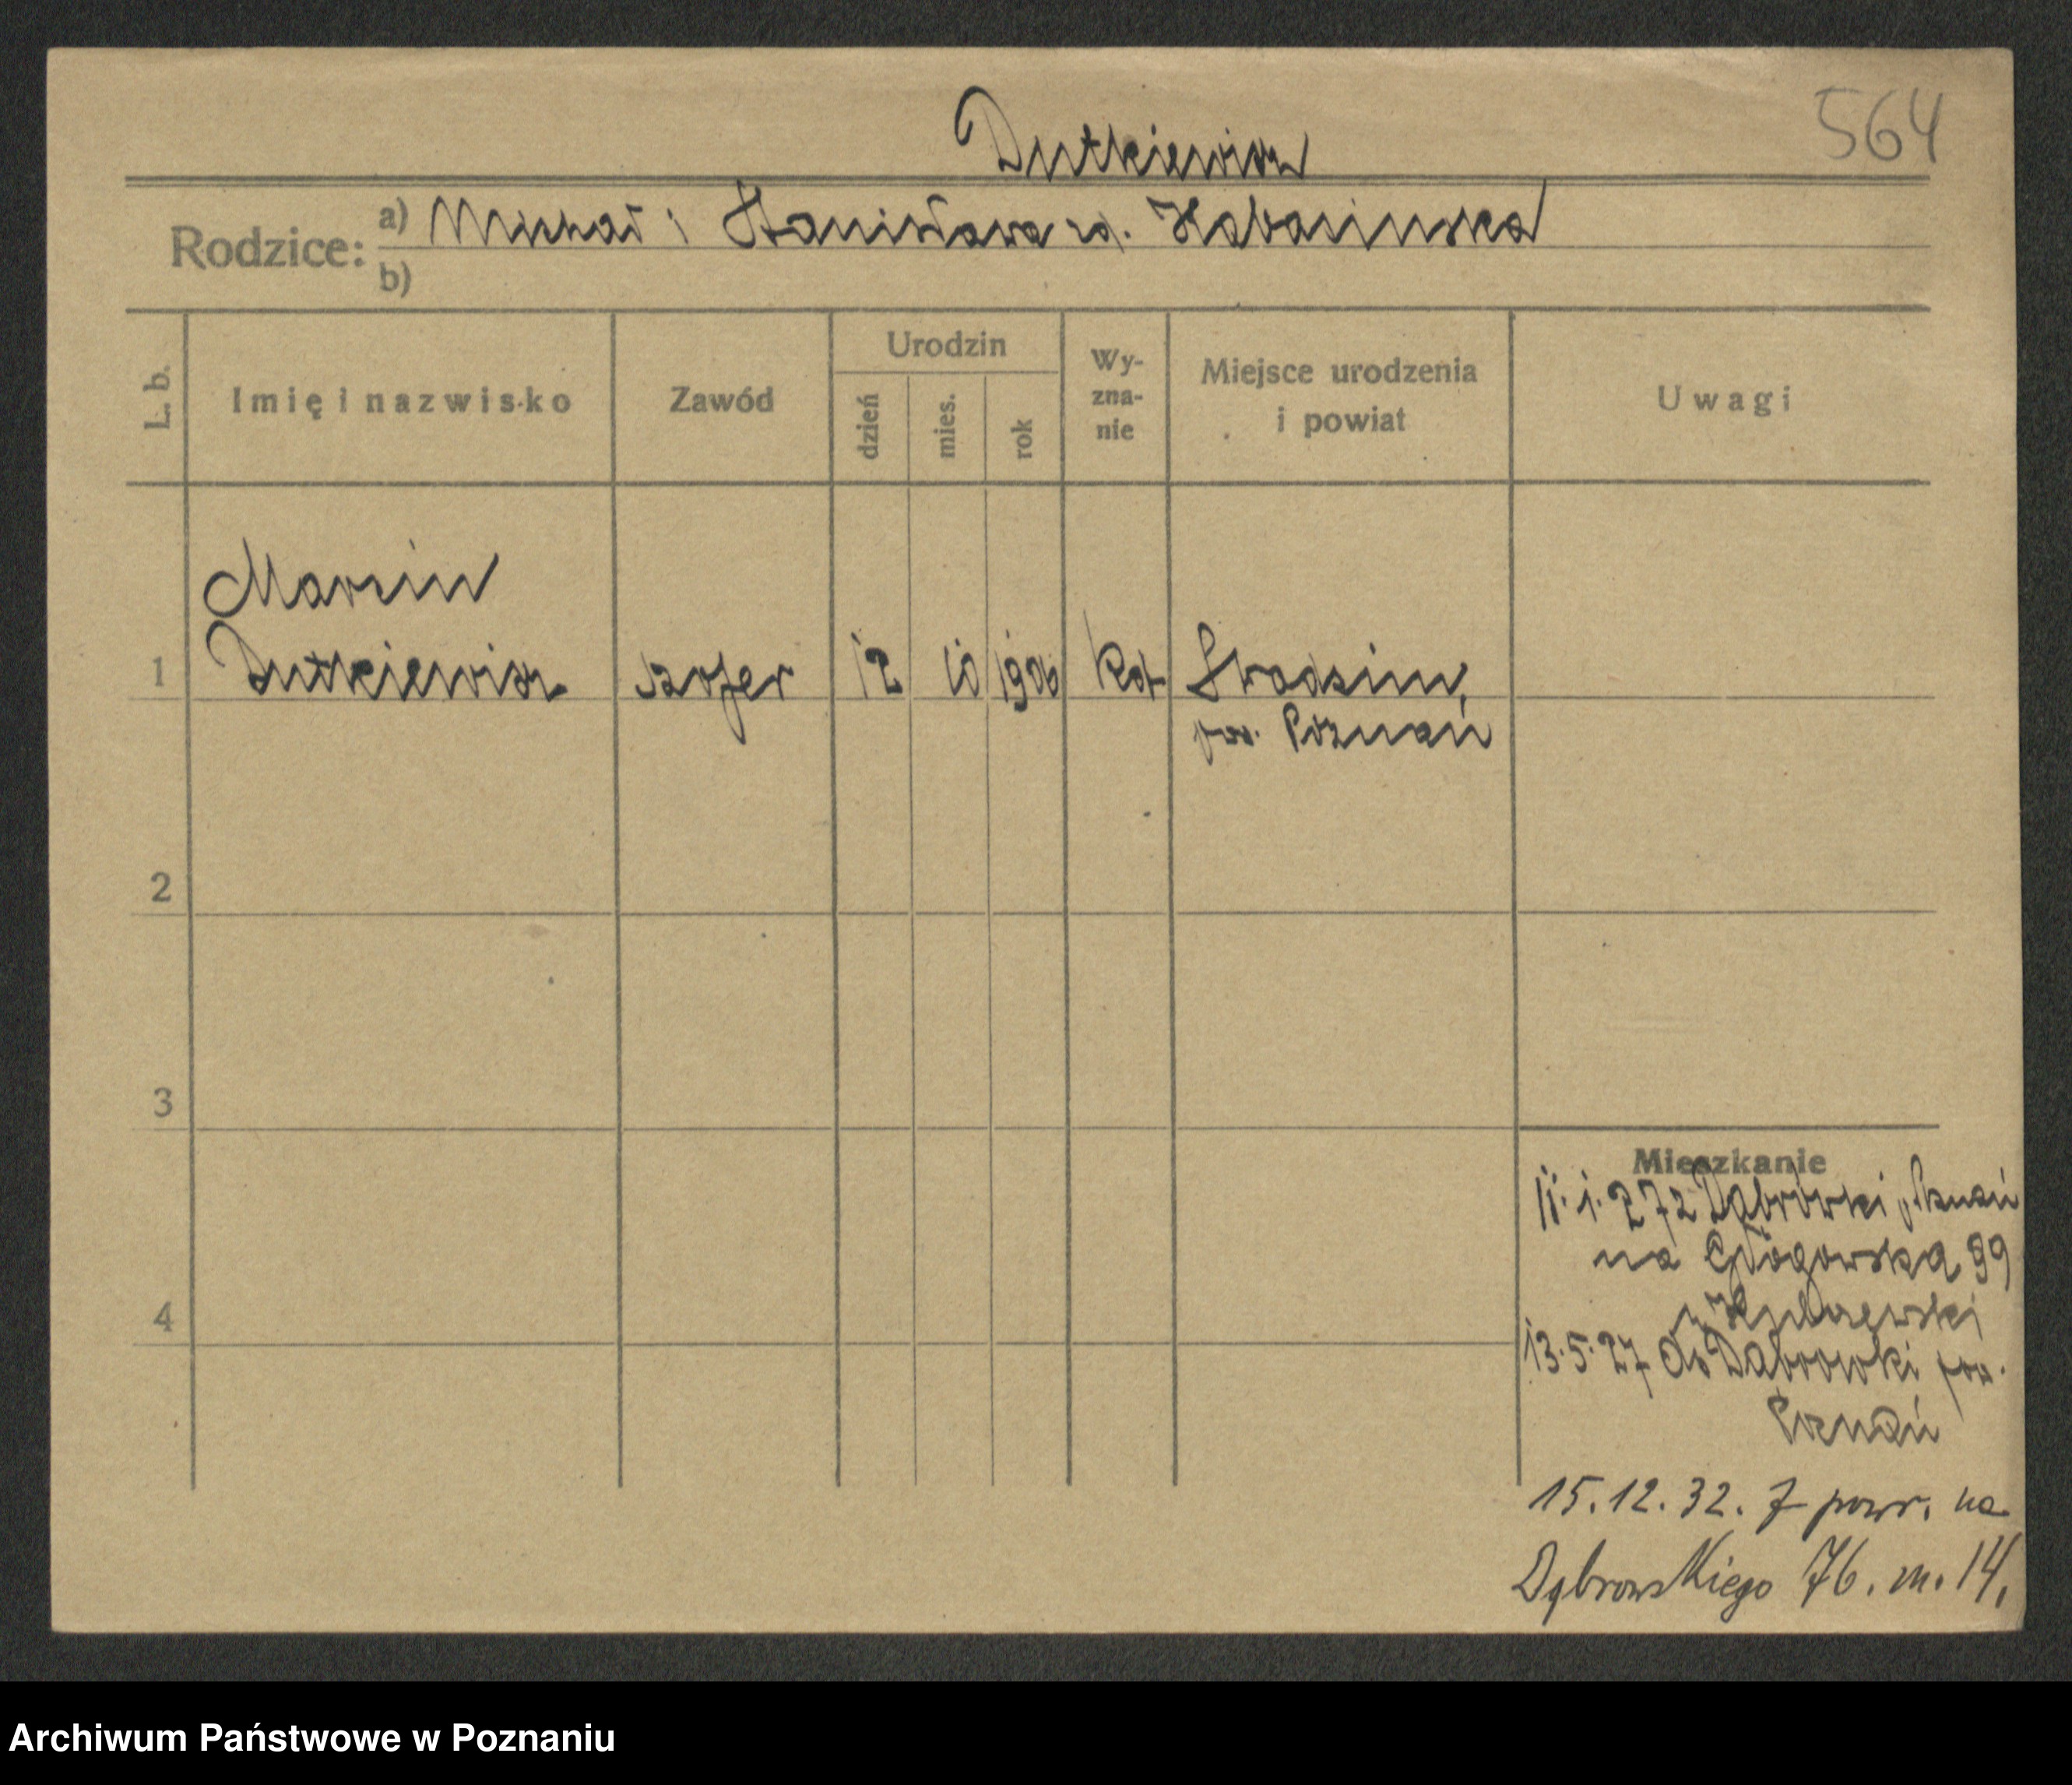 Dutkiewicz
564
Rodzice: a) Michał i Stanisława zd. Habasińska
b)
L. b.
Imię i nazwisko
Zawód
Urodzin
dzień
mies.
rok
Wy-
zna-
nie
Miejsce urodzenia
i powiat
Uwagi
Marcin
1 Dutkiewicz szofer 12 10 1906 kat
pow. Poznań
2
3
4
Mieszkanie
11. 1. 27 z Dąbrówki p. Poznań
na Głogowska 99
13. 5. 27 do Dąbrowki pow.
Poznań
15. 12. 32. Z powr. na
Dąbrowskiego 76. m. 14.
Archiwum Państwowe w Poznaniu